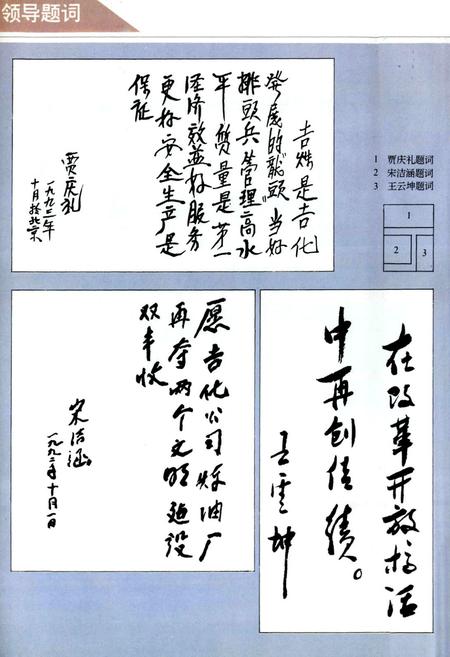 领导题词
吉炼是吉化
發展的“龍頭”当好
排頭兵管理高水
平質量是第一
经济效益好服务
更好安全生产是
保证
贾庆礼
一九九二年
十月於北京
1 贾庆礼题词
2 宋洁涵题词
3 王云坤题词
1
2 3
愿吉化公司炼油厂
再夺两个文明建设
双丰收
宋洁涵
一九九二年十月一日
在改革开放搞活
中再创佳绩。
王雲坤